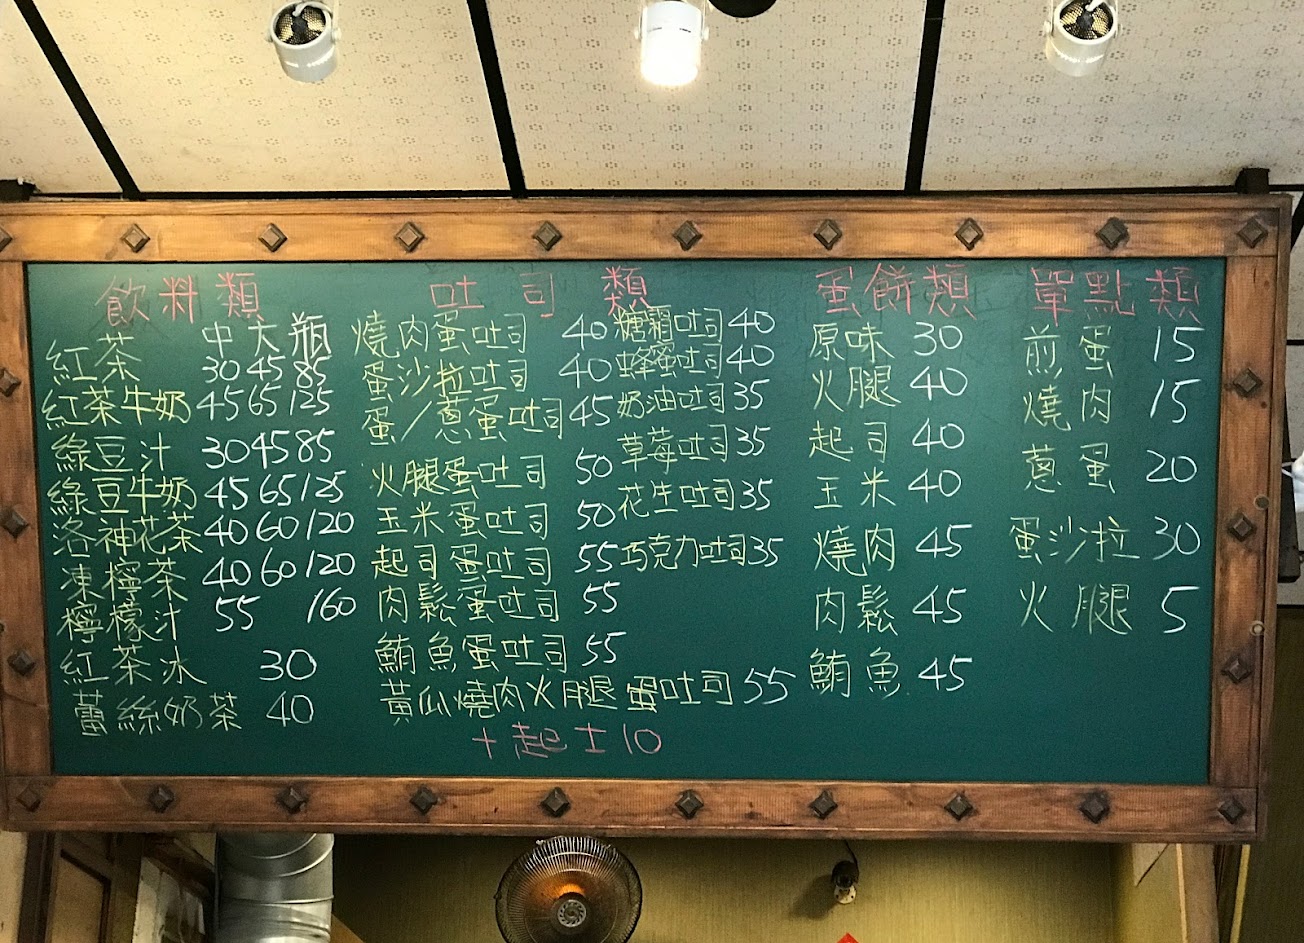 飲料類
中 大 瓶
紅茶 30 45 85
紅茶牛奶 45 65 125
綠豆汁 30 45 85
綠豆牛奶 45 65 125
洛神花茶 40 60 120
凍檸茶 40 60 120
檸檬汁 55 160
紅茶冰 30
薑絲奶茶 40
吐司類
燒肉蛋吐司 40
蛋沙拉吐司 40
蛋/蔥蛋吐司 45
火腿蛋吐司 50
玉米蛋吐司 50
起司蛋吐司 55
肉鬆蛋吐司 55
鮪魚蛋吐司 55
黃瓜燒肉火腿蛋吐司 55
+起士10
糖霜吐司 40
蜂蜜吐司 40
奶油吐司 35
草莓吐司 35
花生吐司 35
巧克力吐司 35
蛋餅類
原味 30
火腿 40
起司 40
玉米 40
燒肉 45
肉鬆 45
鮪魚 45
單點類
煎蛋 15
燒肉 15
蔥蛋 20
蛋沙拉 30
火腿 5